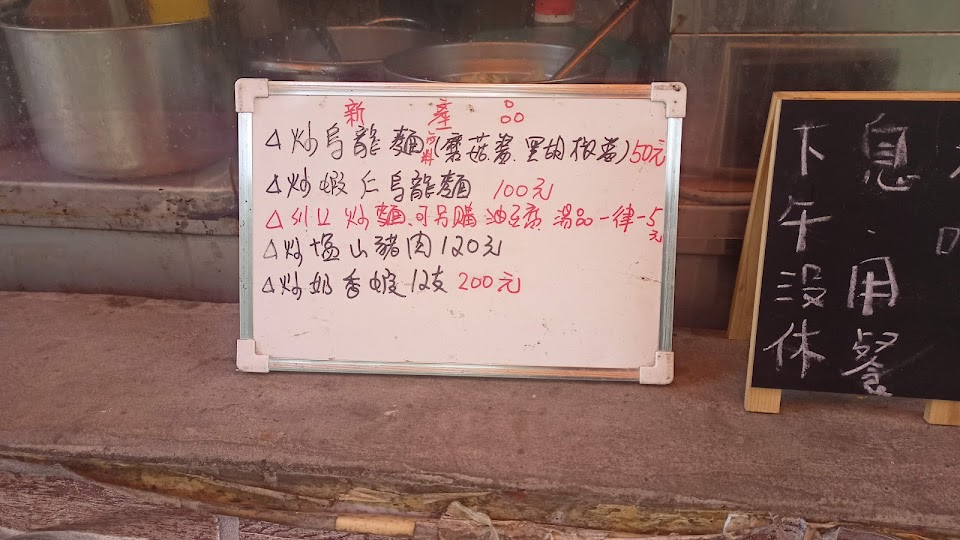 新產品
△炒烏龍麵(蘑菇醬.黑胡椒醬)50元
△炒蝦仁烏龍麵 100元
△以上炒麵.可另購油豆腐.湯品一律-5元
△炒塩山豬肉120元
△炒奶香蝦12支200元
息.用餐
下午沒休